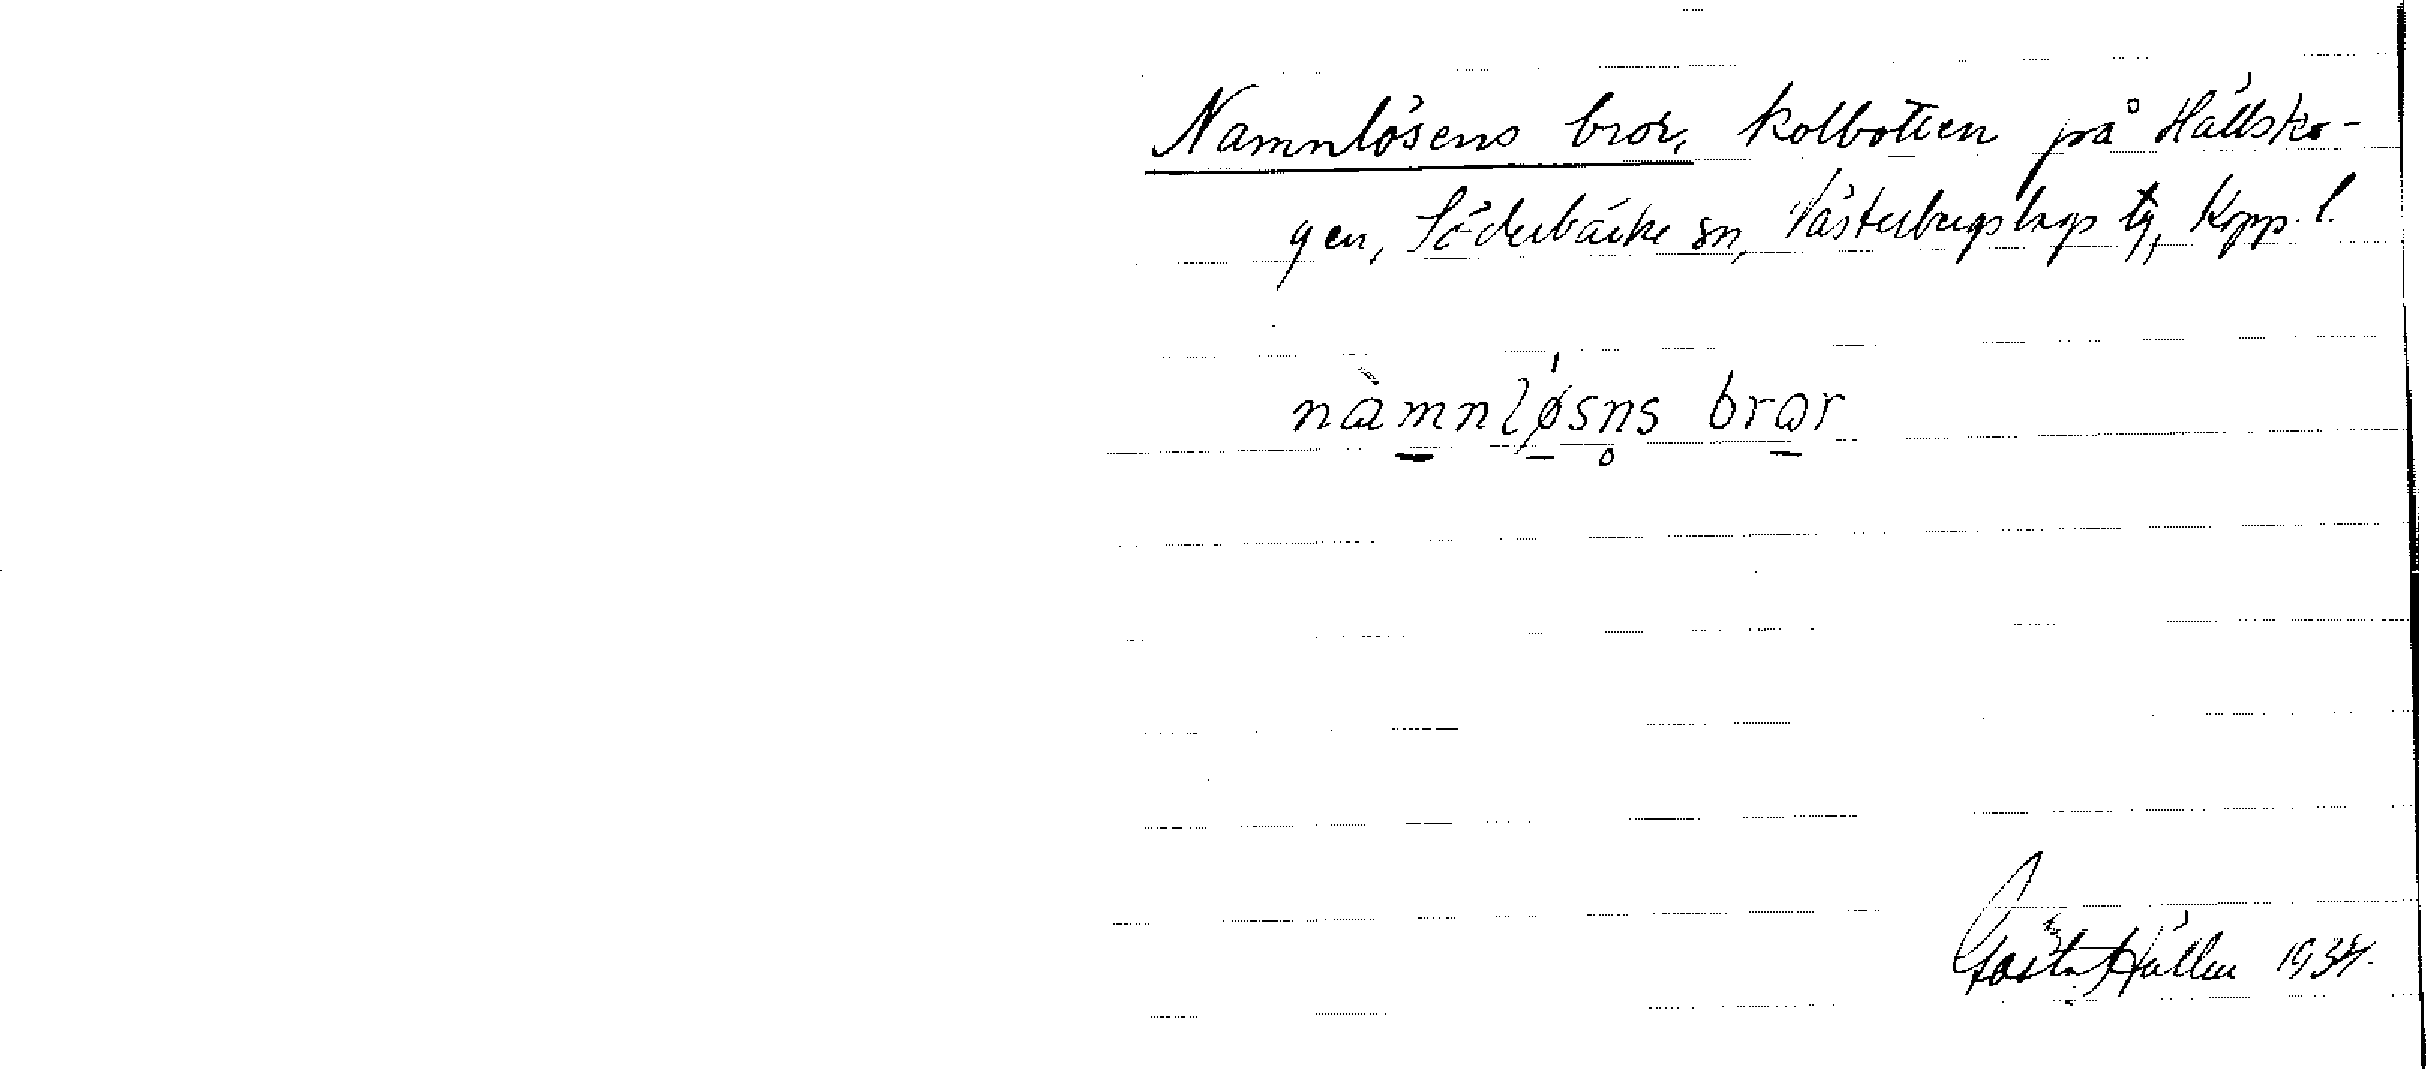 Namnlösens bror, kolbotten på Hällsko-
gen, Söderbärke sn, Västerbergslags tg, Kopp. l.
nàmnløsn̥s bror
Gösta Hällen 1934.